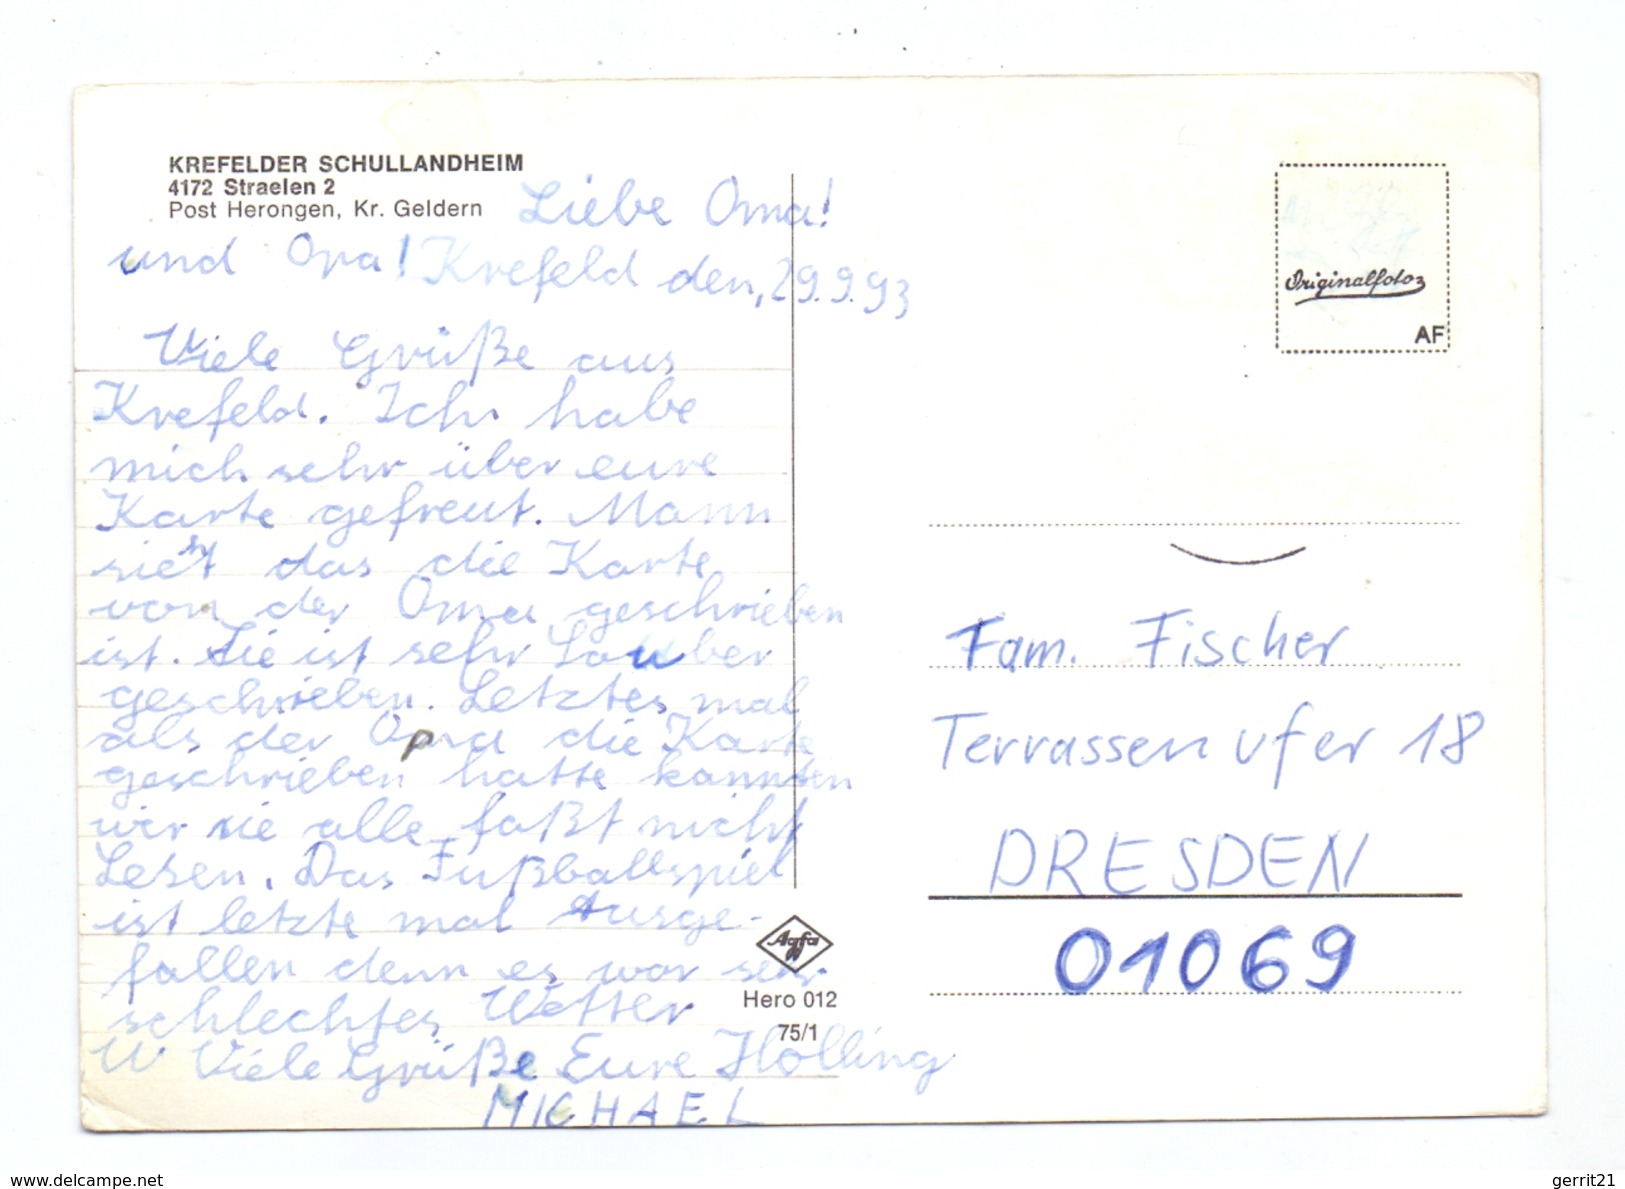 KREFELDER SCHULLANDHEIM
4172 Straelen 2
Post Herongen, Kr. Geldern
Liebe Oma!
und Opa! Krefeld den, 29.9.93
Viele Grüße aus
Krefeld. Ich habe
mich sehr über eure
Karte gefreut. Mann
sieht das die Karte
von der Oma geschrieben
ist. Sie ist sehr Sauber
geschrieben. Letztes mal
als der Opa die Karte
geschrieben hatte kannten
wir sie alle faßt nicht
Lesen. Das Fußballspiel
ist letzte mal Ausge-
fallen denn es war sehr
schlechtes Wetter
Viele Grüße Eure Holling
MICHAEL
Agfa
Hero 012
75/1
Originalfoto
AF
Fam. Fischer
Terrassenufer 18
DRESDEN
01069
www.delcampe.net
gerrit21